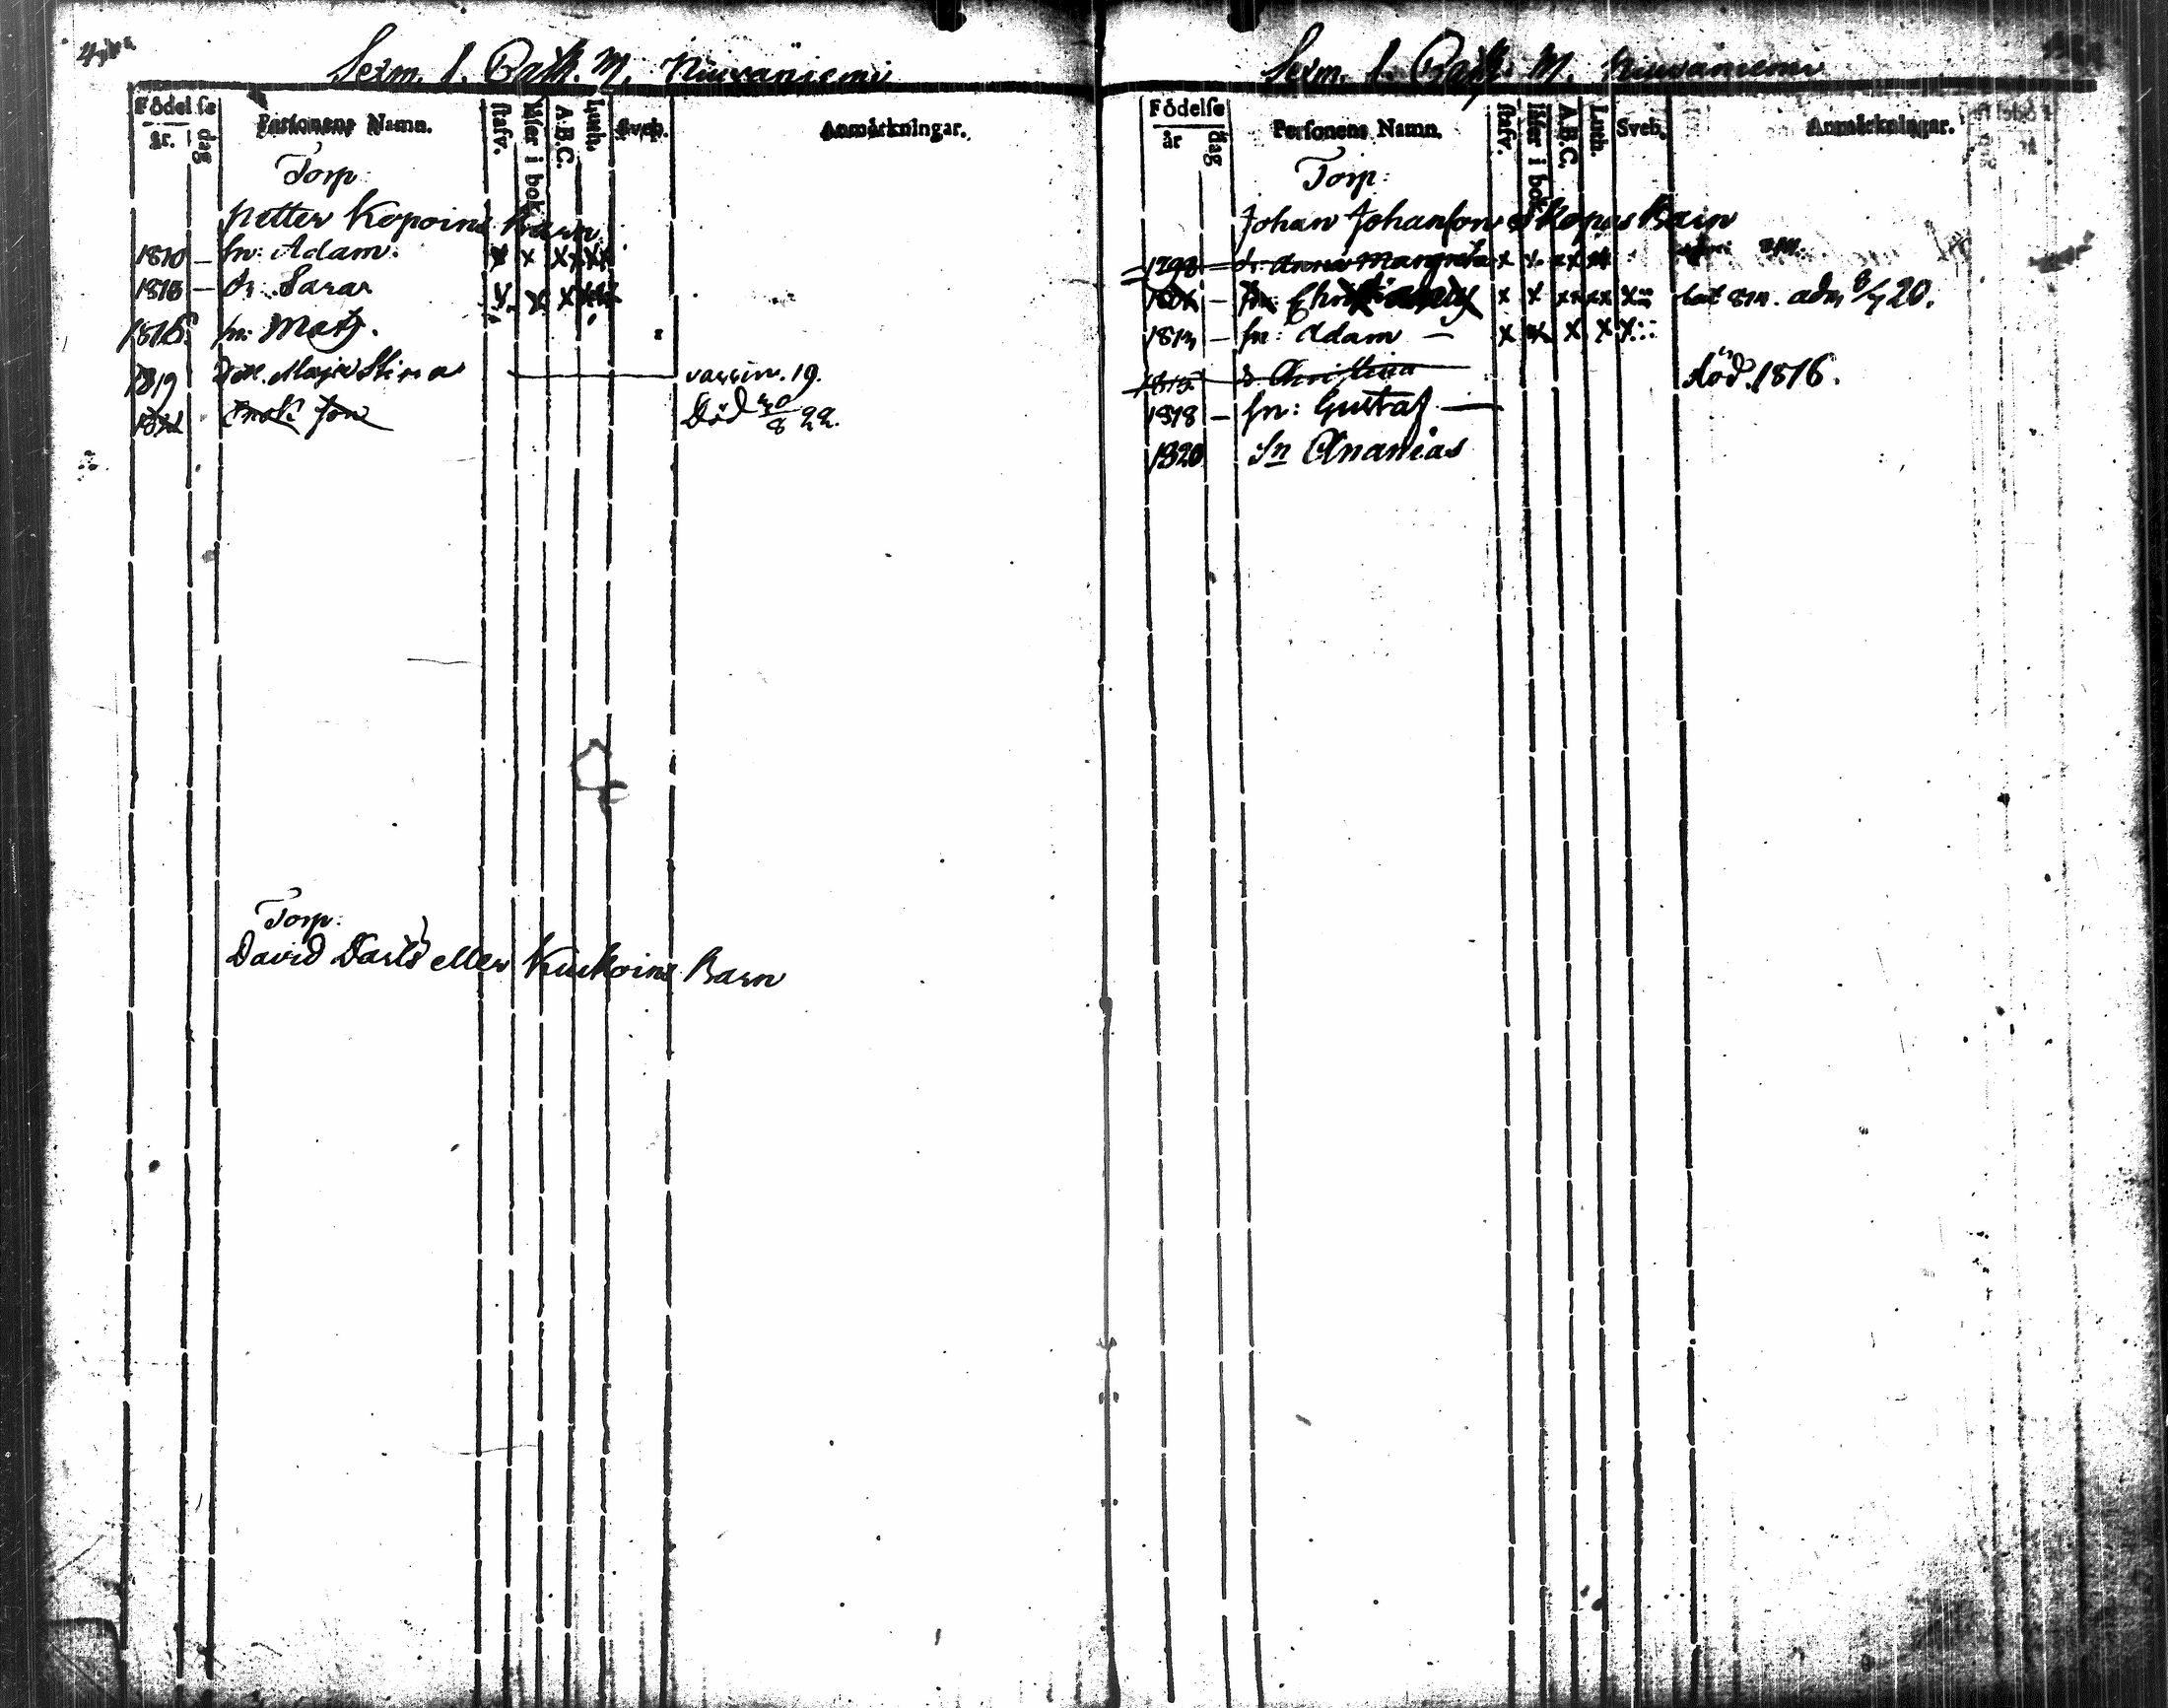 Sexm. 1. Path. M. Niuvaniemi
Födelse
år. dag
Personens Namn.
stafv.
läser i bok
A.B.C.
Luth.
Sveb.
Anmärkningar.
Torp:
Petter Kopoins Barn
1810 – sn: Adam. x x x x x x
1815 – dr: Sara
1816 sn: Mats.
1819 Maja Stina vaccin. 19.
Död 30/8 22.
Torp:
David Darts eller Kuckoins Barn
Sexm. 1. Path. M. Niuvaniemi
Födelse
år dag
Personens Namn.
stafv.
läser i bok
A.B.C.
Luth.
Sveb.
Anmärkningar.
Torp:
Johan Johansons Kopos Barn
1798 – d: Anna Margreta x x x x x
adm 8/7 20.
sn: Adam – x x x x x
d. Christina död. 1816.
1818 – sn: Gustaf —
1820 Sn Ananias